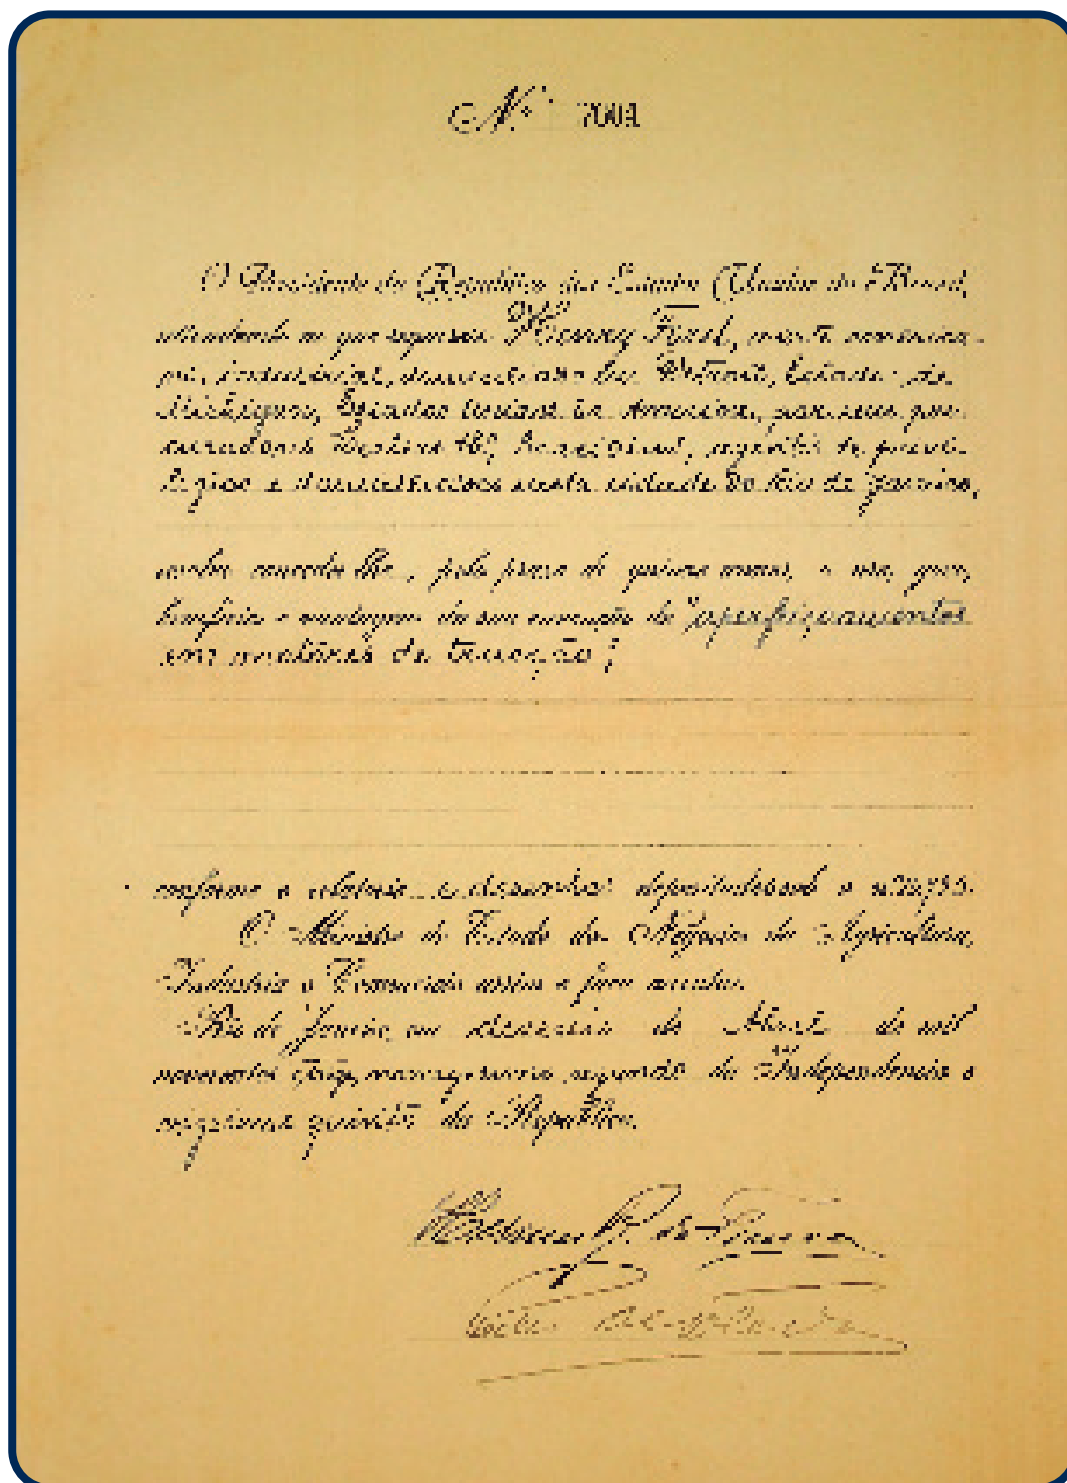 Nº 7001
O Presidente da Republica dos Estados Unidos do Brasil,
attendendo ao que requereu Henry Ford, norte america-
no, industrial, domiciliado em Detroit, Estado de
Michigan, Estados Unidos da America, por seu pro-
curadores de privi-
legios e nesta cidade do Rio de Janeiro,
resolve conceder-lhe, pelo prazo de quinze annos, o uso, goso,
beneficios e vantagens da sua invenção de "aperfeiçoamentos
em motores de tracção";
conforme o relatorio e desenhos depositados sob o nº
O Ministro de Estado dos Negocios da Agricultura,
Industria e Commercio assim o faça executar.
Rio de Janeiro, em dezeseis de Abril de mil
novecentos nonagesimo segundo da Independencia e
vigesimo quinto da Republica.